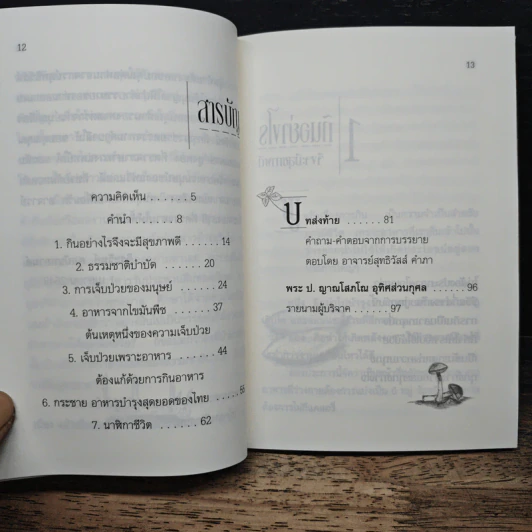 12
สารบัญ
ความคิดเห็น ...... 5
คำนำ ...... 8
1. กินอย่างไรจึงจะมีสุขภาพดี ...... 14
2. ธรรมชาติบำบัด ...... 20
3. การเจ็บป่วยของมนุษย์ ...... 24
4. อาหารจากไขมันพืช ...... 37
ต้นเหตุหนึ่งของความเจ็บป่วย
5. เจ็บป่วยเพราะอาหาร ...... 44
ต้องแก้ด้วยการกินอาหาร
6. กระชาย อาหารบำรุงสุดยอดของไทย ......
7. นาฬิกาชีวิต ...... 62
13
บทส่งท้าย ...... 81
คำถาม-คำตอบจากการบรรยาย
ตอบโดย อาจารย์สุทธิวัสส์ คำภา
พระ ป. ญาณโสภโณ อุทิศส่วนกุศล ...... 96
รายนามผู้บริจาค ...... 97